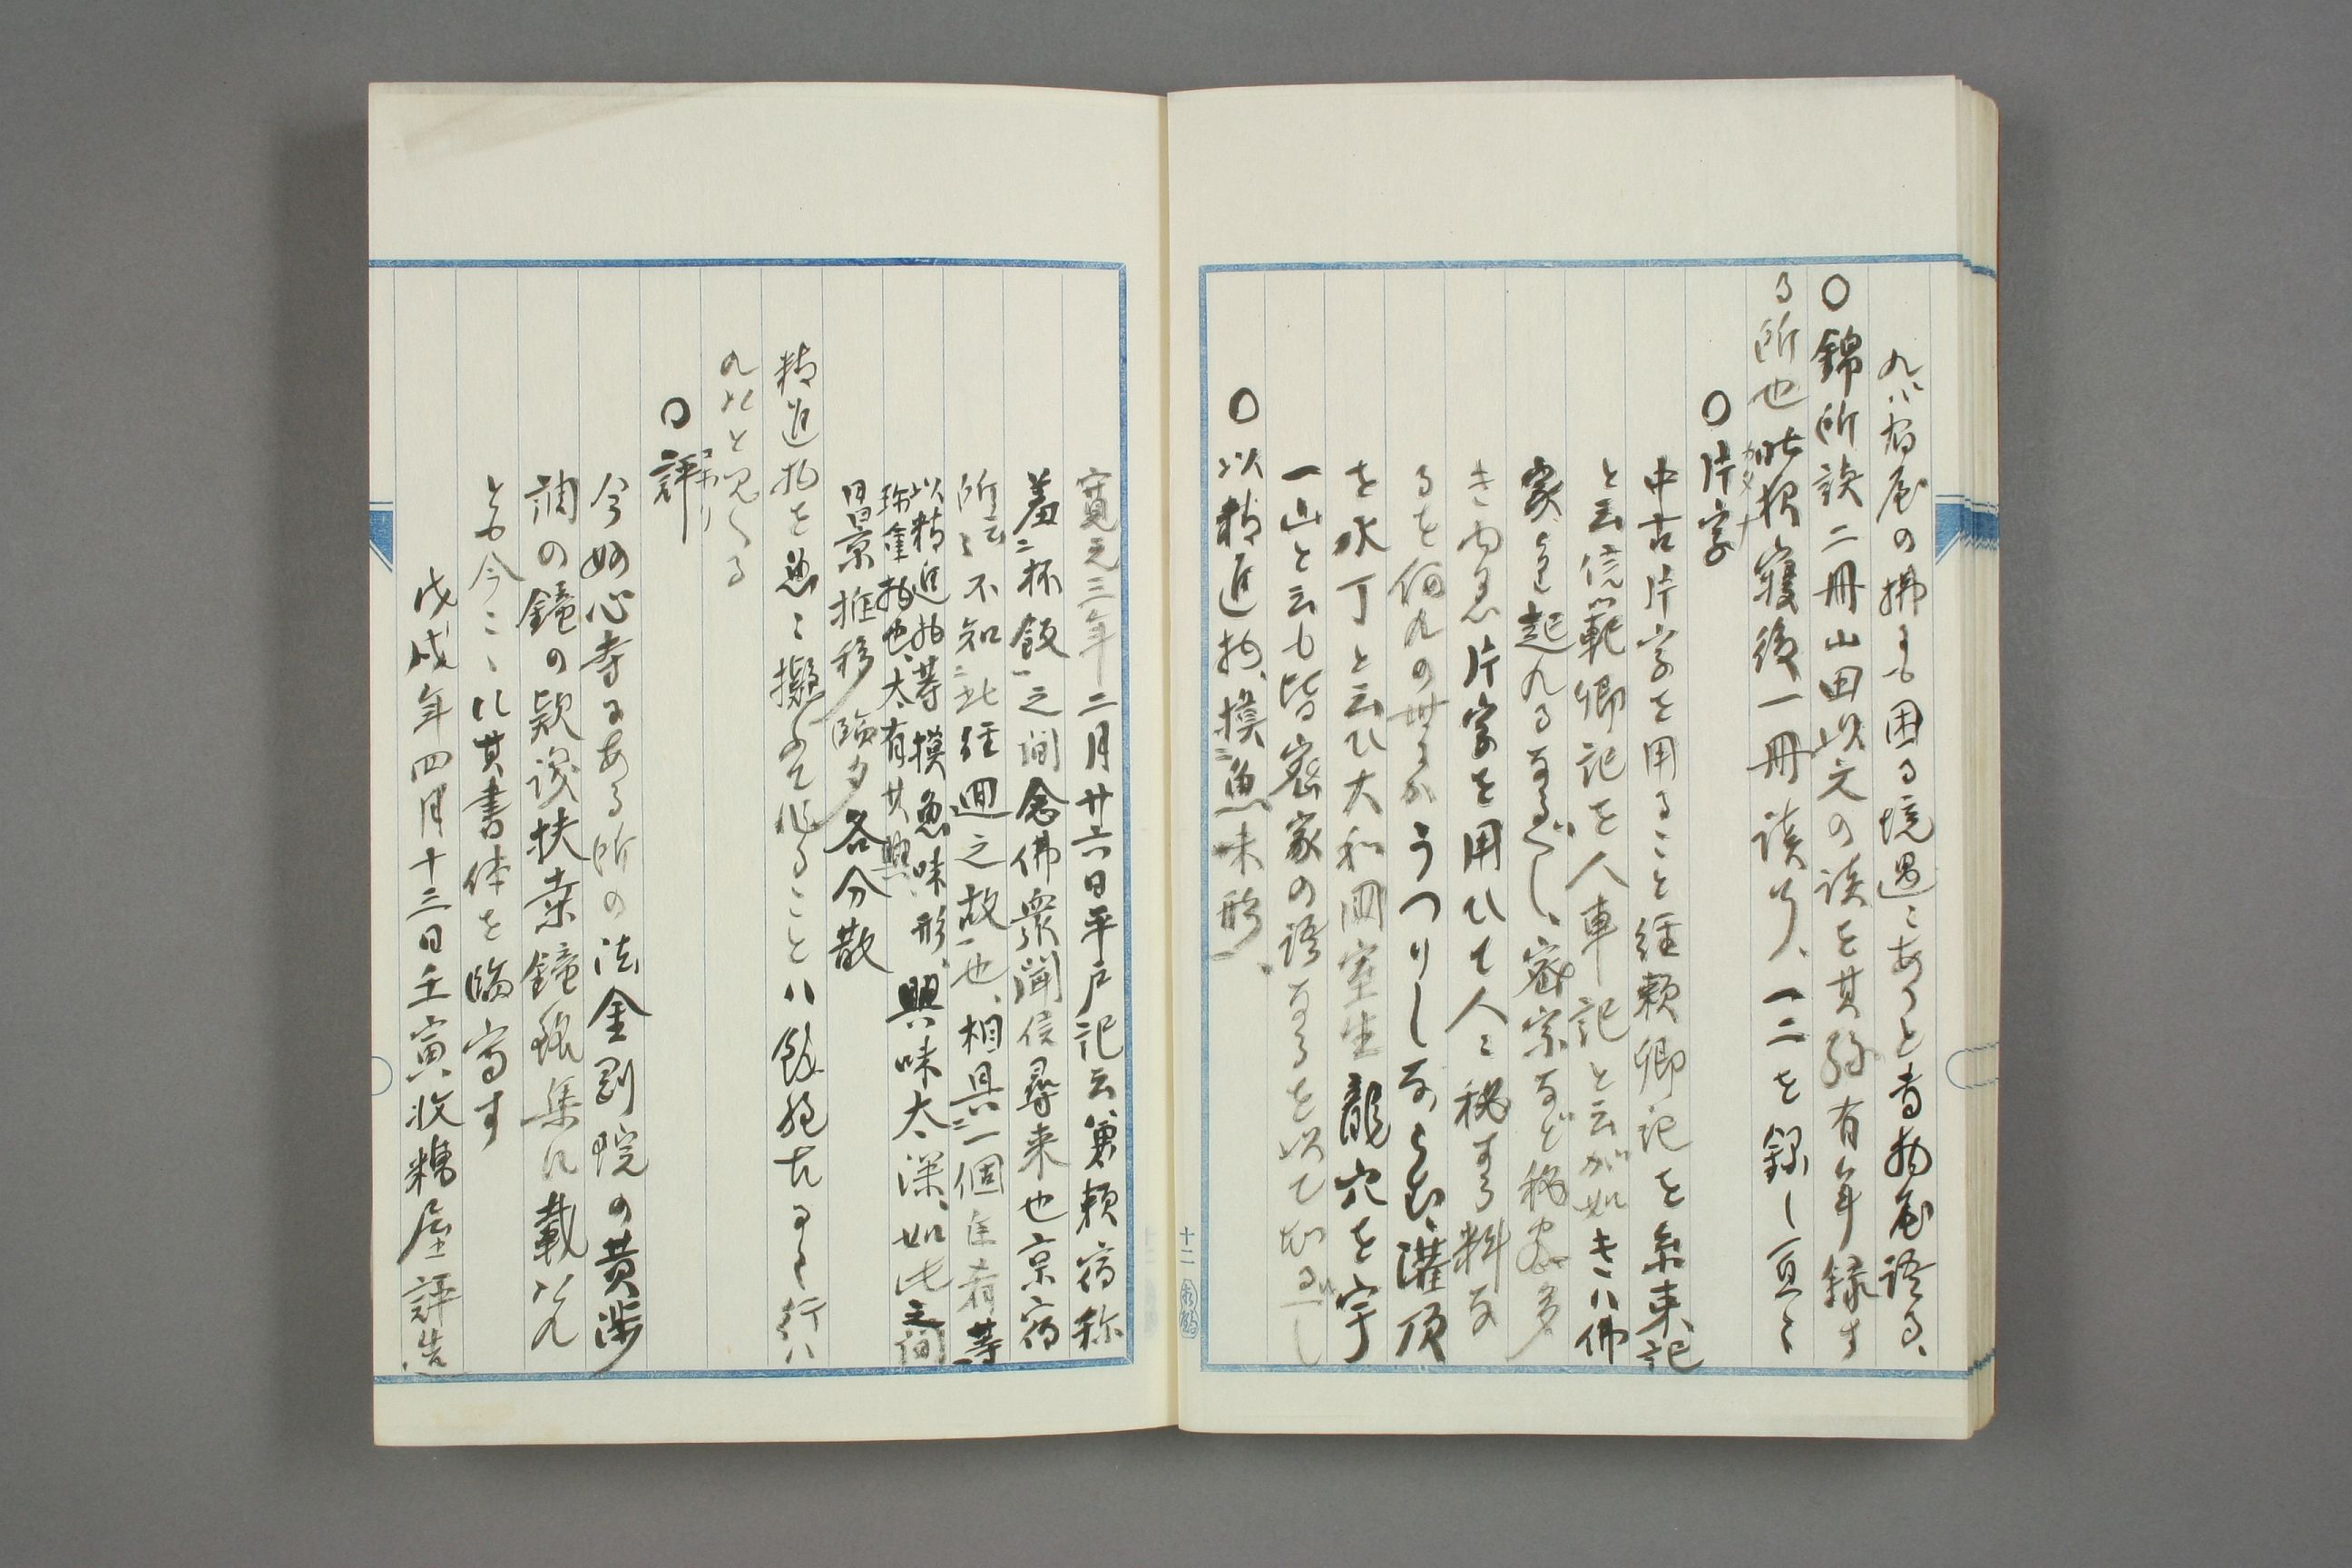 れバ宿屋の拂にも困る境遇にありと書物屋語る、
〇錦所談二冊山田以文の談を其孫有年録す
る所也 此猨寝後一冊読了、一二を録し置く
〇片字
カタナ
中古片字を用ること経頼卿記を糸束記
と云信範卿記を人車記と云が如きハ佛
家より起れるなるべし、密宗など秘密多
き由る片字を用ひて人に秘する料な
るを何れの世よりかうつりしならむ、灌頂
を水丁と云ひ大和国室生龍穴を宇
一山と云も皆密家の語なるを以て知るべし
〇以精進物、摸魚味形、
寛元三年二月廿六日平戸記云、兼頼宿称
羞杯飯之間念佛衆聞信尋来也京宿
所云々不知此経廻之故也、相具一個肴等
以精進物等摸魚味形、
珍重物也、太有其興、
興味太深、如此之間
晷景推移 臨夕各分散
精進物を魚に擬へて作ることハ餘程古くより行ハ
れたと見へる
〇評
コホリ
今妙心寺にある所の法金剛院の黄渉
調の鐘の款識扶桑鐘銘集に載すれ
とも今こゝに其書体を臨写す
戊戌年四月十三日壬寅收糟屋評造
十二